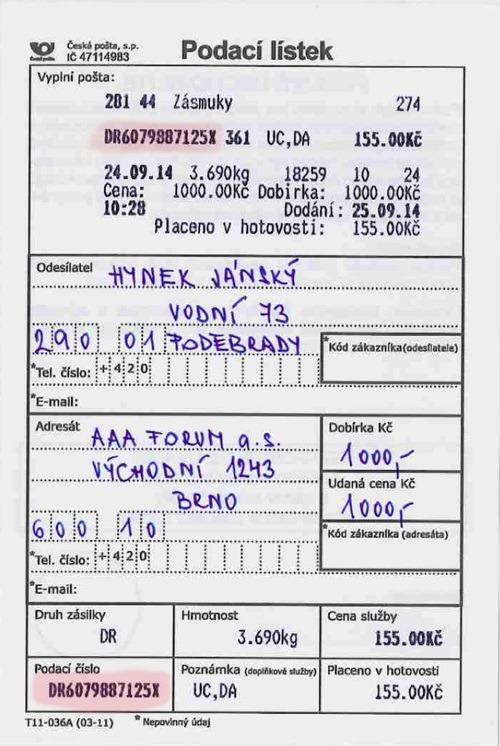 Česká pošta, s.p.
IČ 47114983
Podací lístek
Vyplní pošta:
281 44 Zásmuky 274
DR6079887125X 361 UC,DA 155.00Kč
24.09.14 3.690kg 18259 10 24
Cena: 1000.00Kč Dobirka: 1000.00Kč
10:28 Dodání: 25.09.14
Placeno v hotovosti: 155.00Kč
Odesílatel HYNEK JÁNSKÝ
VODNÍ 73
290 01 PODEBRADY
*Kód zákazníka (odesílatele)
*Tel. číslo: +420
*E-mail:
Adresát AAA FORUM a.s.
VÝCHODNÍ 1243
BRNO
600 10
Dobírka Kč
1000,-
Udaná cena Kč
1000,-
*Kód zákazníka (adresáta)
*Tel. číslo: +420
*E-mail:
Druh zásilky Hmotnost Cena služby
DR 3.690kg 155.00Kč
Podací číslo Poznámka (doplňkové služby) Placeno v hotovosti
DR6079887125X UC,DA 155.00Kč
T11-036A (03-11) * Nepovinný údaj